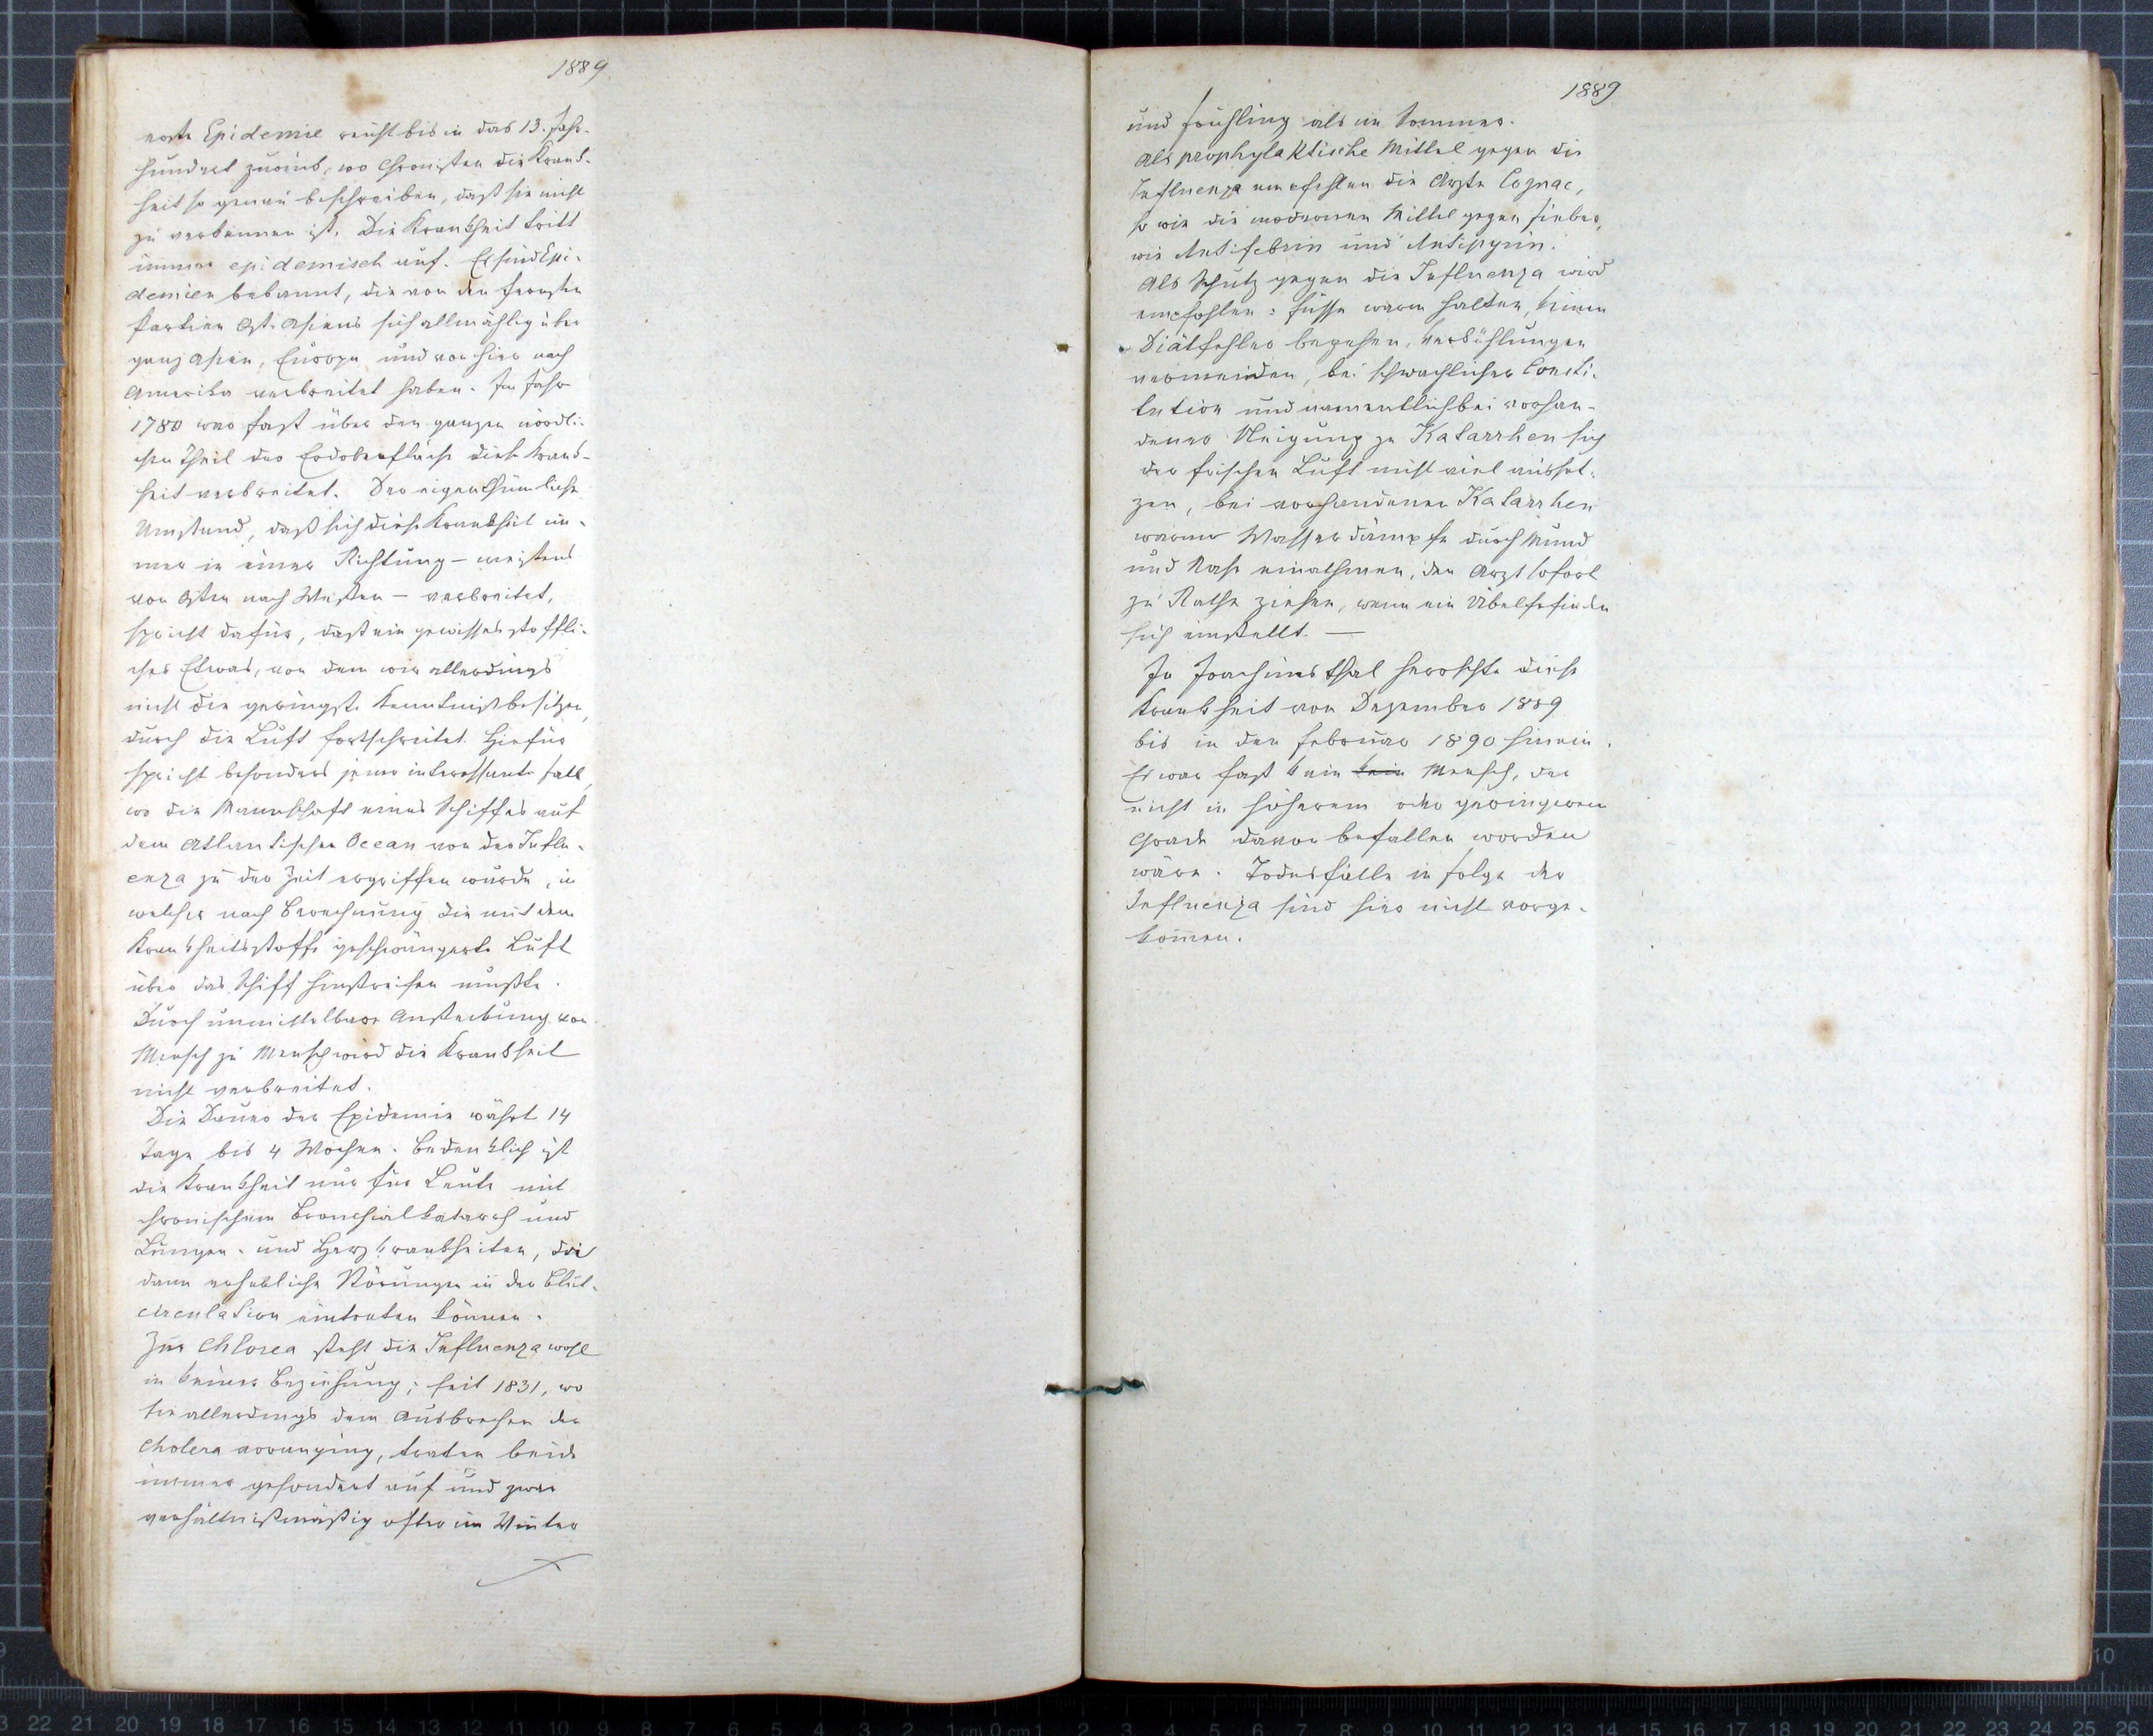 1889
erste Epidemie reicht bis in das 13. Jahr-
hundert zurück, wo Chronisten die Krank-
heit so genau beschreiben, daß sie nicht
zu verkennen ist. Die Krankheit tritt
immer epidemisch auf. Es sind Epi-
demien bekannt, die von den fernsten
Partien Ost-Asiens sich allmählig über
ganz Asien, Europa und von hier nach
Amerika verbreitet haben. Im Jahr
1780 war fast über den ganzen nördli-
chen Theil der Erdoberfläche diese Krank-
heit verbreitet. Der eigenthümliche
Umstand, daß sich diese Krankheit im-
mer in einer Richtung – meistens
von Osten nach Westen – verbreitet,
spricht dafür, daß ein gewisses stoffli-
ches Etwas, von dem wir allerdings
nicht die geringste Kenntniß besitzen,
durch die Luft fortschreitet. Hiefür
spricht besonders jener interessante Fall,
wo die Mannschaft eines Schiffes auf
dem Atlantischen Ocean von der Influ-
enza zu der Zeit ergriffen wurde, in
welcher nach Berechnung die mit dem
Krankheitsstoffe geschwängerte Luft
über das Schiff hinstreichen mußte.
Durch unmittelbare Ansteckung von
Mensch zu Mensch wird die Krankheit
nicht verbreitet.
Die Dauer der Epidemie währt 14
Tage bis 4 Wochen. Bedenklich ist
die Krankheit nur für Leute mit
chronischem Bronchialkatarrh und
Lungen- und Herzkrankheiten, da
dann erhebliche Störungen in der Blut-
circulation eintreten können.
Zur Chlorea steht die Influenza wohl
in keiner Beziehung; seit 1831, wo
sie allerdings dem Ausbrechen der
Cholera voranging, traten beide
immer gesondert auf und zwar
verhältnißmäßig öfter im Winter
1889
und Frühling als im Sommer.
Als prophylaktische Mittel gegen die
Influenza empfehlen die Ärzte Cognac,
so wie die modernen Mittel gegen Fieber,
wie Antifebrin und Antipyrin.
Als Schutz gegen die Influenza wird
empfohlen: Füsse warm halten, keinen
Diätfehler begehen, Verkühlungen
vermeiden, bei schwächlicher Consti-
tution und namentlich bei vorhan-
dener Neigung zu Katarrhen sich
der frischen Luft nicht viel ausset-
zen, bei vorhandenen Katarrhen
warme Wasserdämpfe durch Mund
und Nase einathmen, den Arzt sofort
zu Rathe ziehen, wenn ein Übelbefinden
sich einstellt. —
In Joachimsthal herrschte diese
Krankheit von Dezember 1889
bis in den Februar 1890 hinein.
Es war fast kein kein Mensch, der
nicht in höherem oder geringerem
Grade davon befallen worden
wäre. Todesfälle in Folge der
Influenza sind hier nicht vorge-
kommen.